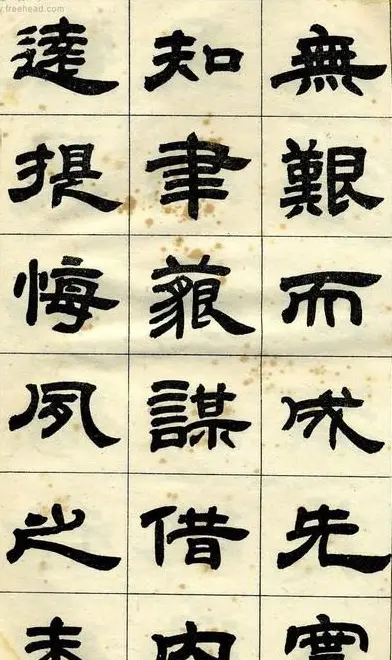 freehead.com
無艱而成先實
知聿藐謀借内
達提悔夙之未